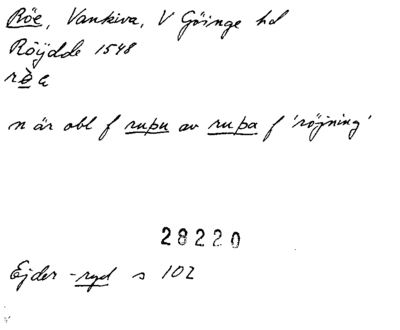 Röe, Vankiva, V Göinge hd
Röijdde 1548
n är obl f ruþu av ruþa f 'röjning'
28220
Ejder -ryd s 102